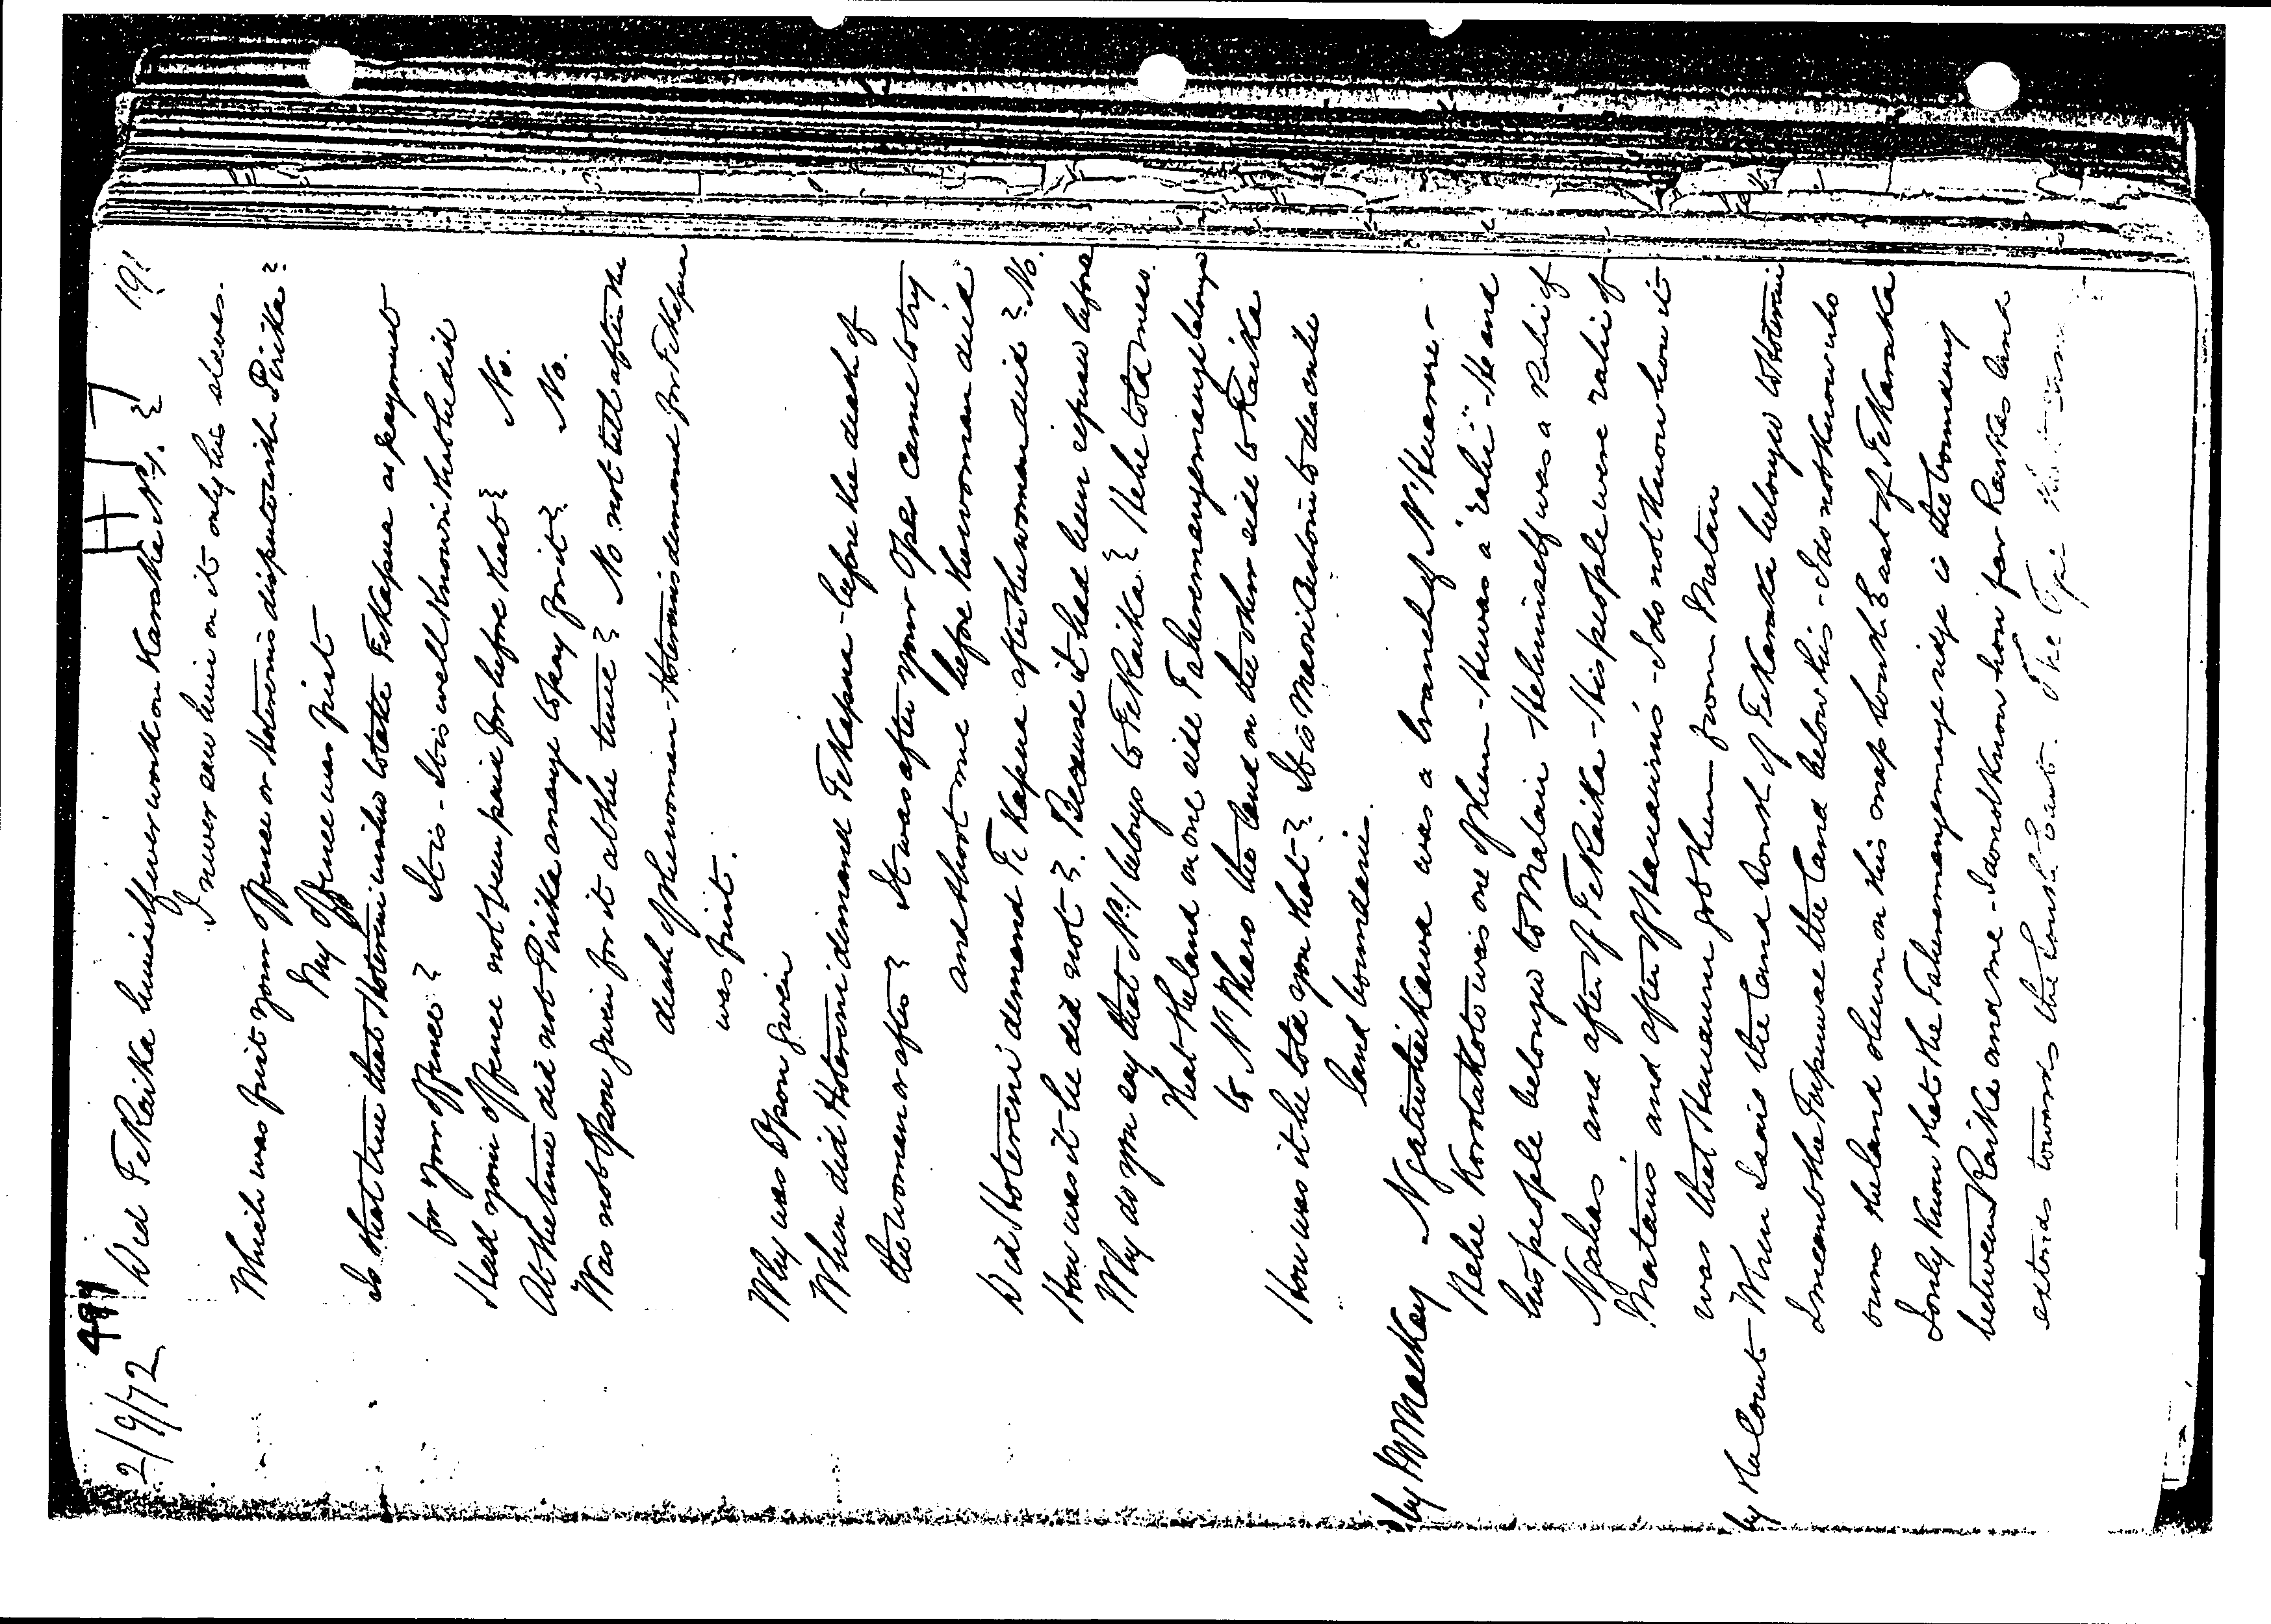 2/9/72
491
191
Did Te Raika himself ever work on Karaka No 1. ?
I never saw him on it only his slaves.
Which was first your offence or Hotereni's dispute with Pirika ?
My offence was first
Is that true that Hotereni wished to take Te Kapua as payment
for your offence ? It is - It is well known that he did
Had your offence not been paid for before that ? No.
At the time did not Pirika arrange to pay for it ? No.
Was not Opou given for it at the time ? No not till after the
death of the woman - Hotereni's demand for Te Kapua
was first.
Why was Opou given
When did Hotereni demand Te Kapua - before the death of
the woman or after ? It was after your Opes came to try
and shoot me before the woman died
Did Hotereni demand Te Kapua after the woman died ? No.
How was it he did not ? Because it had been refused before
Why do you say that No 1 belongs to Te Raika ? He he told me so.
that the land on one side Tahuremangemange belongs
to N'Pharo the land on the other side to Raika
How was it he told you that ? It is Maori custom to describe
land boundaries.
by HW Mackay Ngatiwhaikawa was a branch of N'Huarere -
Hehe Korotahoto was one of them - He was a "rahi" - He and
his people belonged to Matau - He himself was a Rahi of
Ngaheas and after of Te Raika - His people were 'rahi' of
Matau's and after of Hauauru's - I do not know how it
was that Hauauru got them from Matau
by the Court - When I said the land South of Te Karaka belonged to Hotereni
I meant the Papuwae the land below this - I do not know who
owns the land shewn on this map South East of Te Karaka
I only know that the Tahuremangemange ridge is the boundary
between Raika and me - I do not know how far Raika's land
extends towards the South East. The